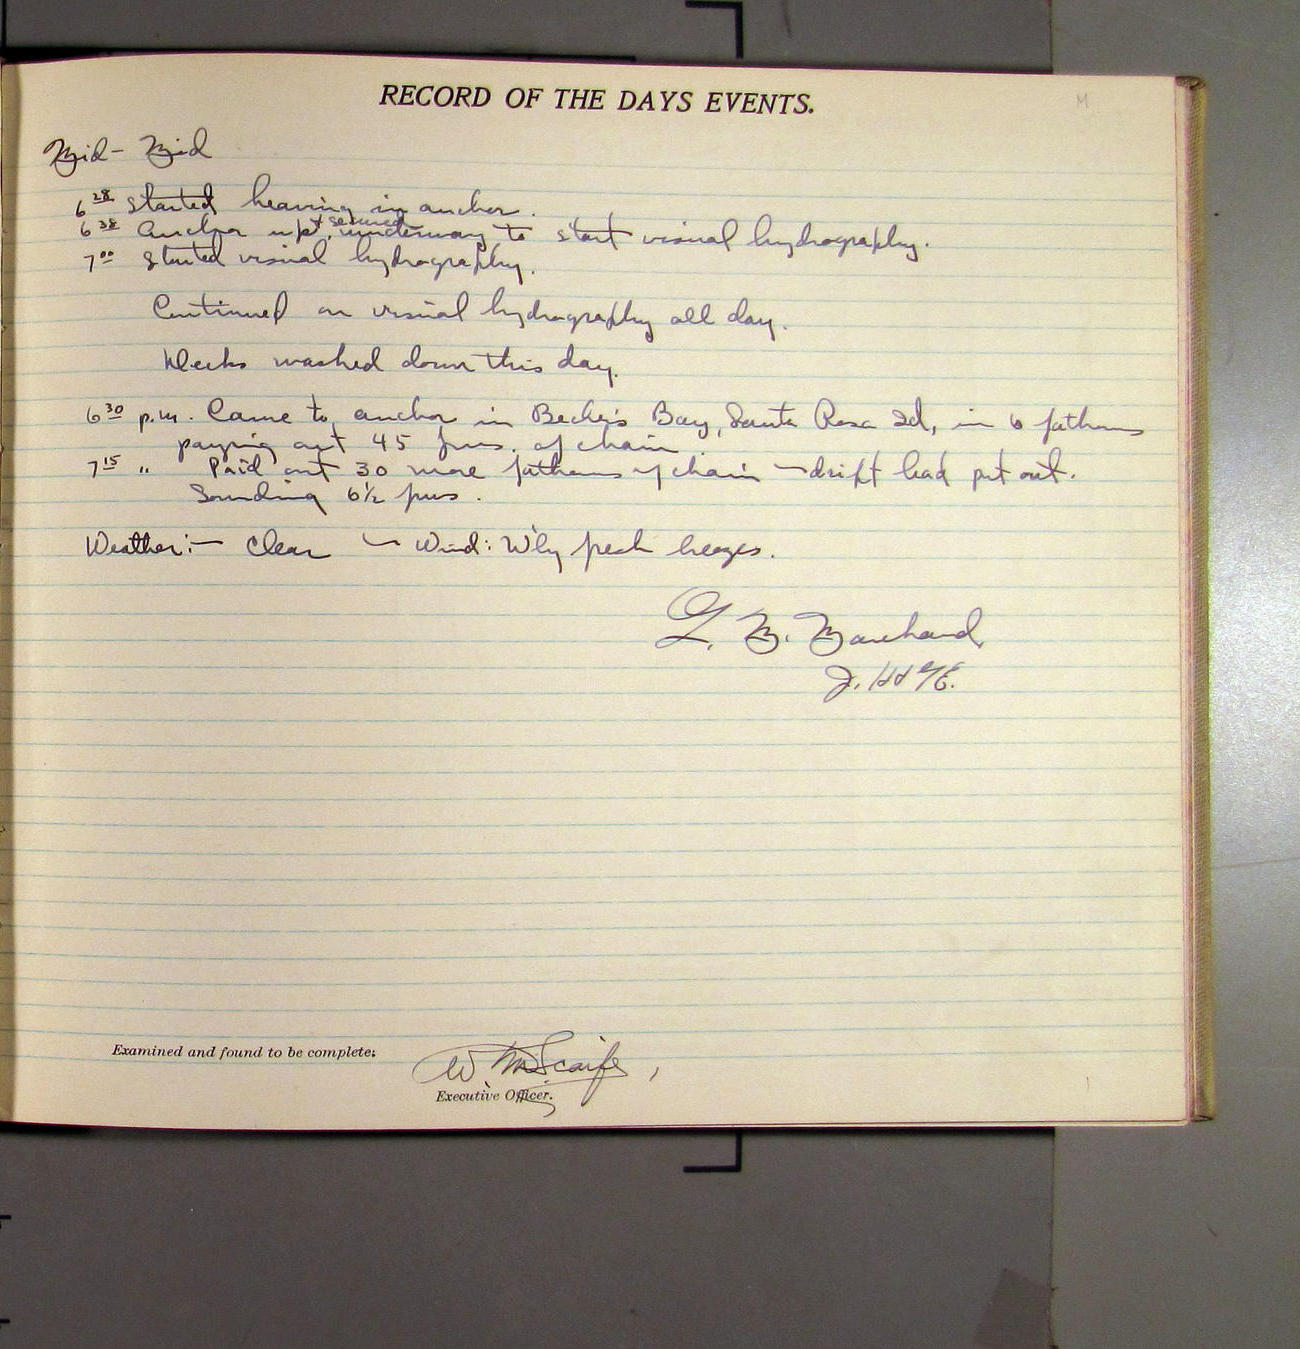 RECORD OF THE DAYS EVENTS.
M
Mid - Mid
6 28 Started heaving in anchor.
6 38 Anchor up & secured, underway to start visual hydrography.
7 00 Started visual hydrography.
Continued on visual hydrography all day.
Decks washed down this day.
6 30 p.m. Came to anchor in Becher's Bay, Santa Rosa Id, in 6 fathoms
paying out 45 fms. of chain.
7 15 " Paid out 30 more fathoms of chain - drift lead put out.
Sounding 6 1/2 fms.
Weather:- Clear - Wind: W'ly fresh breezes.
L. M. Marchand,
J. H. & G. E.
Examined and found to be complete:
W M Scaife,
Executive Officer.